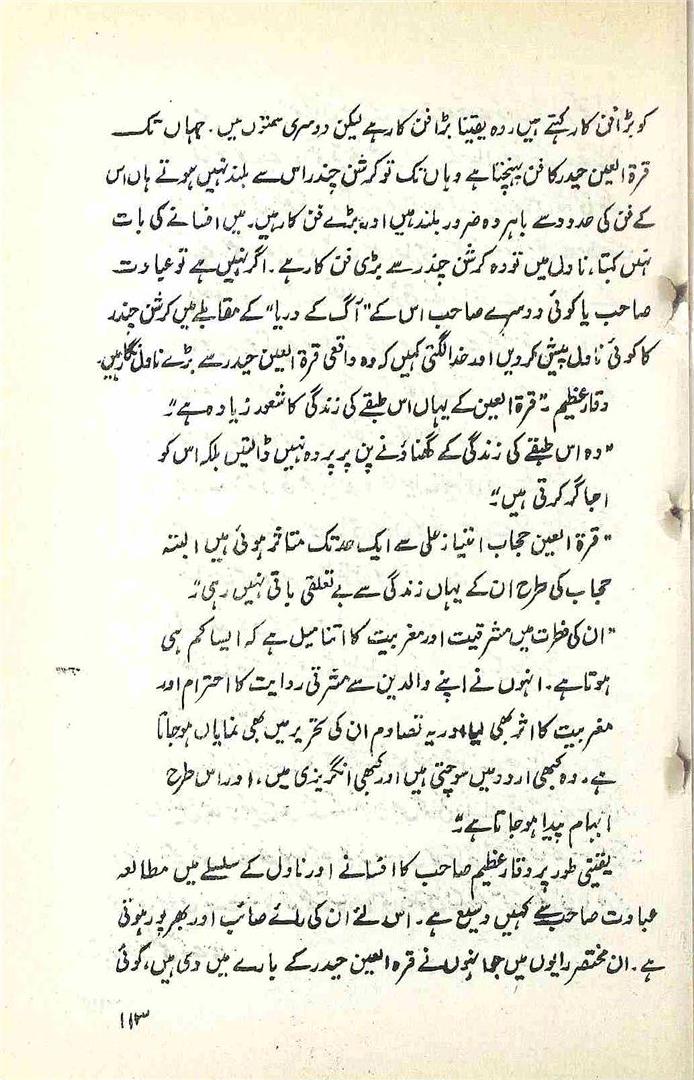 کو بڑا فن کار کہتے ہیں، وہ یقیناً بڑا فن کار ہے لیکن دوسری سمتوں میں۔ جہاں تک
قرۃ العین حیدر کا فن پہنچتا ہے وہاں تک تو کرشن چندر اس سے بلند نہیں ہوتے ہاں اس
کے فن کی حدود سے باہر وہ ضرور بلند ہیں اور بڑے فن کار ہیں۔ میں افسانے کی بات
نہیں کہتا، ناول میں تو وہ کرشن چندر سے بڑی فن کار ہے۔ اگر نہیں ہے تو عبادت
صاحب یا کوئی دوسرے صاحب اس کے "آگ کے دریا" کے مقابلے میں کرشن چندر
کا کوئی ناول پیش کردیں اور خدا لگتی کہیں کہ وہ واقعی قرۃ العین حیدر سے بڑے ناول نگار ہیں۔
وقار عظیم :۔ "قرۃ العین کے یہاں اس طبقے کی زندگی کا شعور زیادہ ہے"۔
"وہ اس طبقے کی زندگی کے گھناؤنے پن پر پردہ نہیں ڈالتیں بلکہ اس کو
اجاگر کرتی ہیں"۔
"قرۃ العین حجاب امتیاز علی سے ایک حد تک متاثر ہوئی ہیں البتہ
حجاب کی طرح ان کے یہاں زندگی سے بے تعلقی باقی نہیں رہی"۔
"ان کی فطرت میں مشرقیت اور مغربیت کا اتنا میل ہے کہ ایسا کم ہی
ہوتا ہے۔ انہوں نے اپنے والدین سے مشرقی روایت کا احترام اور
مغربیت کا اثر بھی لیا اور یہ تصادم ان کی تحریر میں بھی نمایاں ہو جاتا
ہے۔ وہ کبھی اردو میں سوچتی ہیں اور کبھی انگریزی میں، اور اس طرح
ابہام پیدا ہو جاتا ہے"۔
یقینی طور پر وقار عظیم صاحب کا افسانے اور ناول کے سلسلے میں مطالعہ
عبادت صاحب سے کہیں وسیع ہے۔ اس لئے ان کی رائے صائب اور بھر پور ہوتی
ہے۔ ان مختصر رایوں میں جو انہوں نے قرۃ العین حیدر کے بارے میں دی ہیں، کوئی
۱۱۳